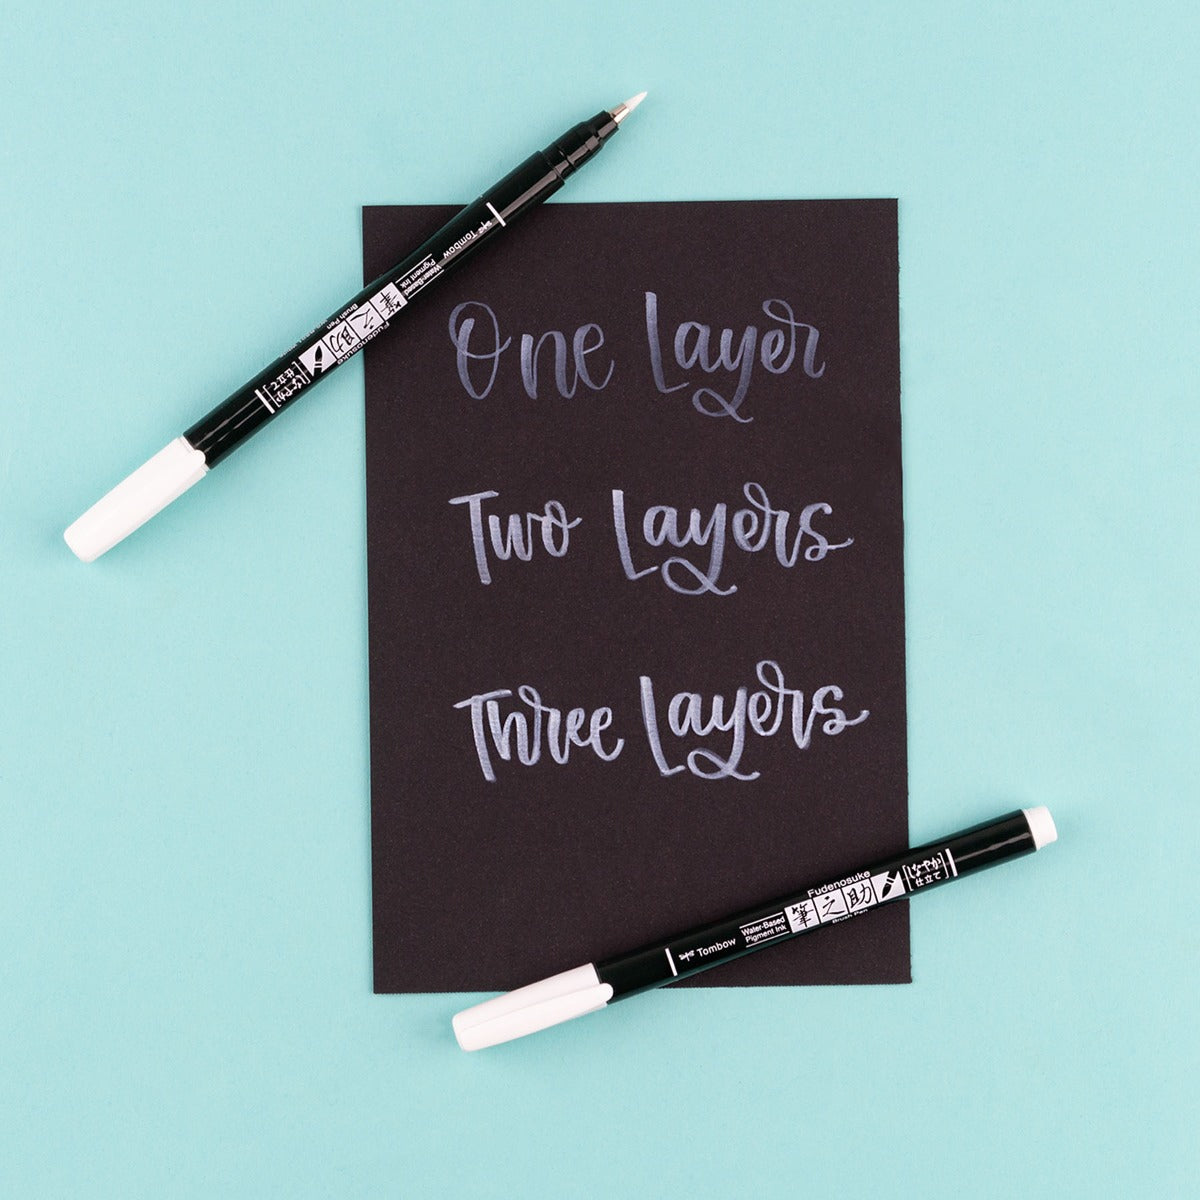 Tombow
Water-Based
Pigment Ink
Fudenosuke
筆之助
Brush Pen
[しなやか
仕立て]
One Layer
Two Layers
Three Layers
Tombow
Water-Based
Pigment Ink
Fudenosuke
筆之助
Brush Pen
[しなやか
仕立て]